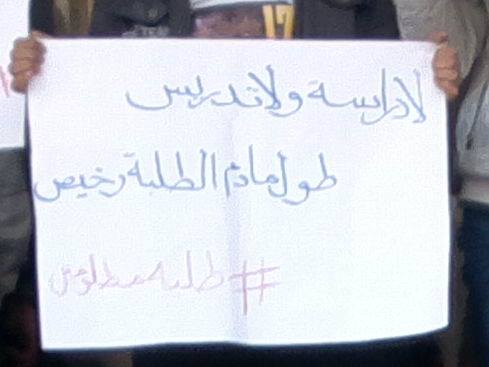 17
لا دراسة ولا تدريس
طول ما دم الطلبة رخيص
#طلبه_مظلومين